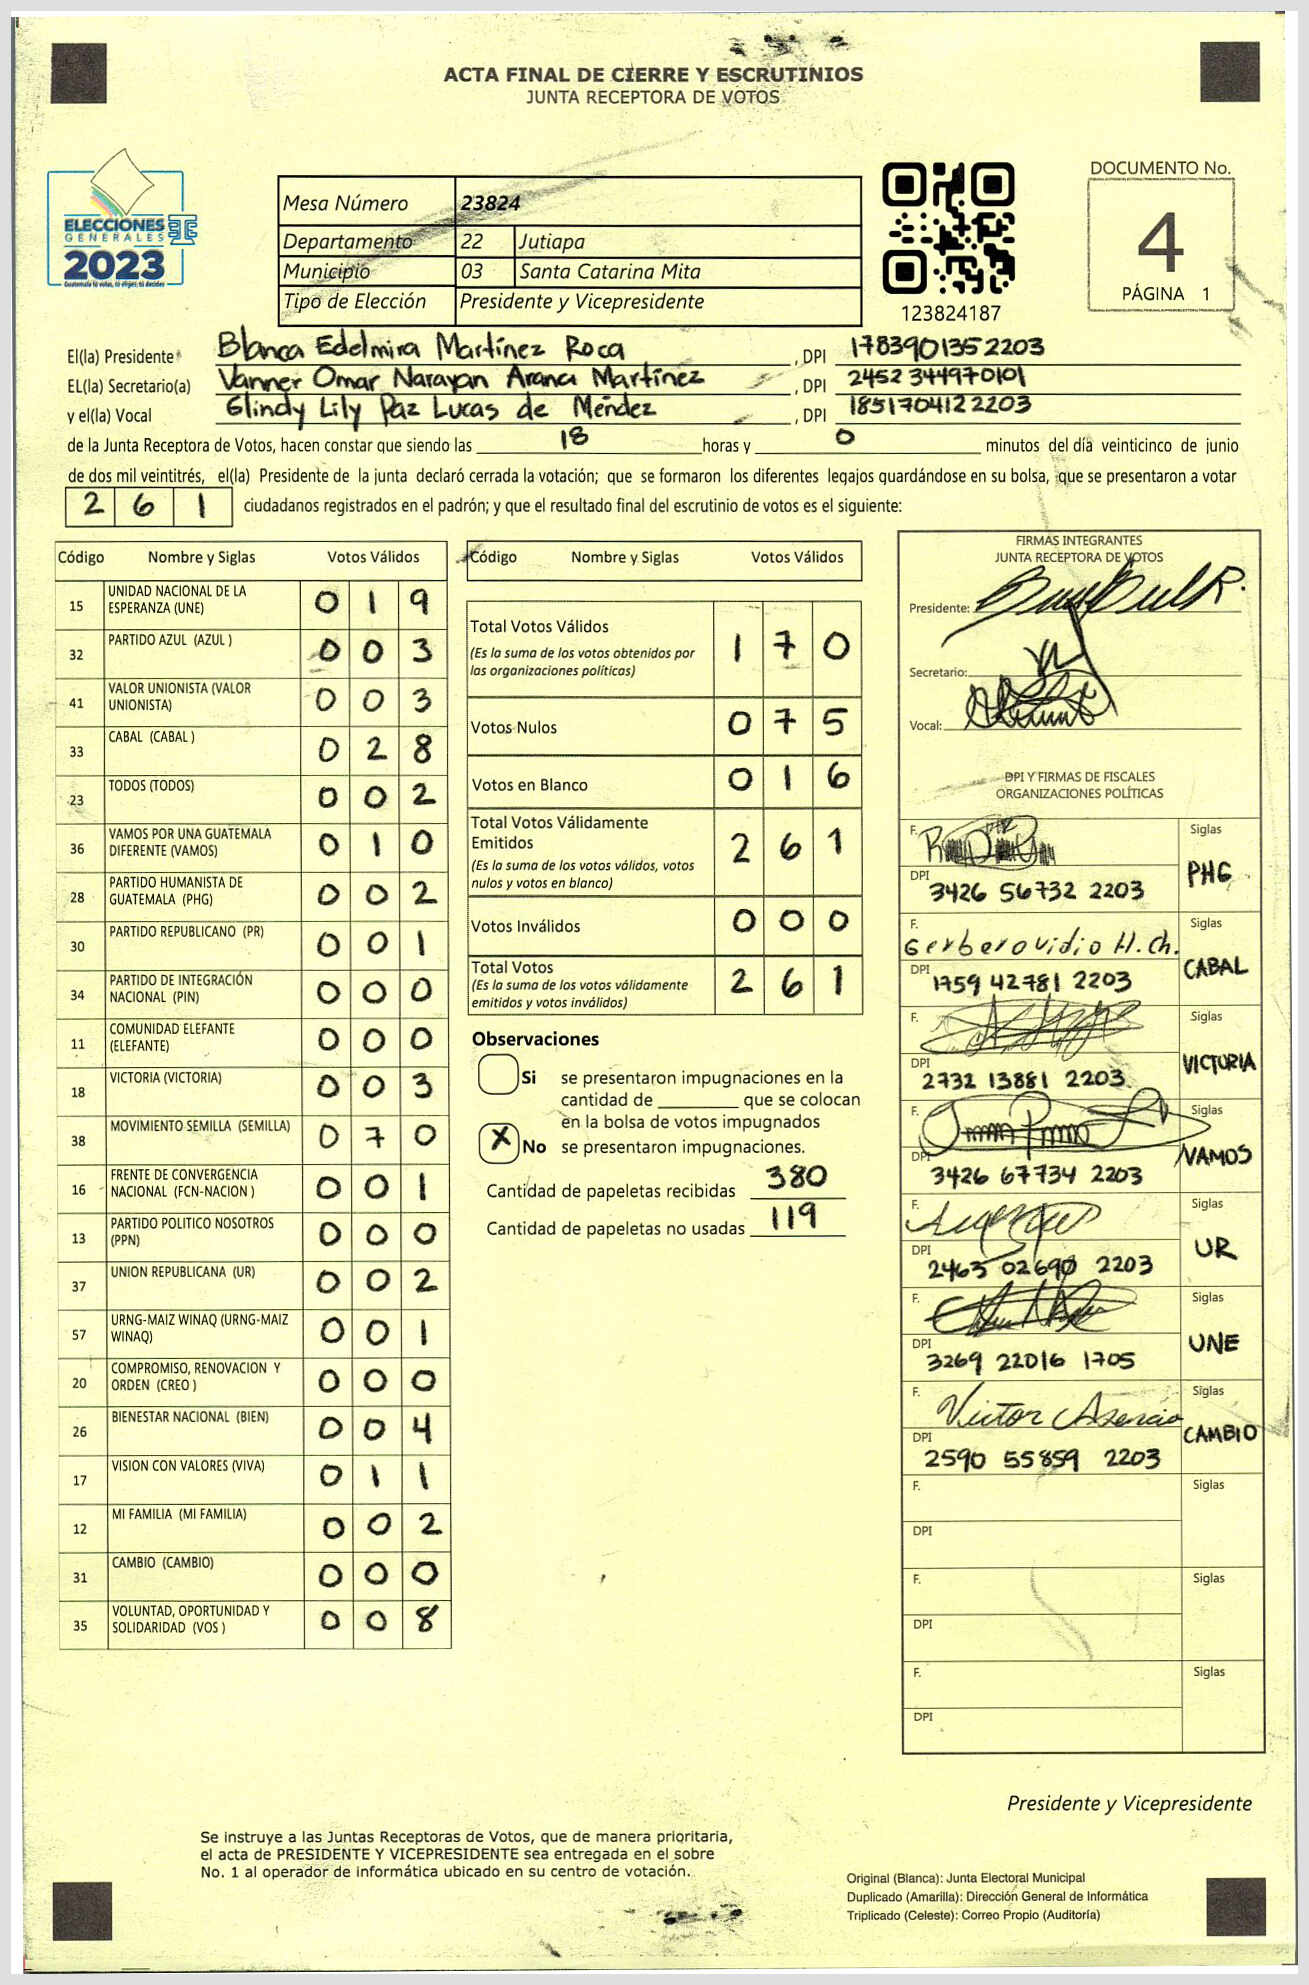 ACTA FINAL DE CIERRE Y ESCRUTINIOS
JUNTA RECEPTORA DE VOTOS
ELECCIONES
GENERALES
2023
Guatemala tú votas, tú eliges, tú decides
Mesa Número 23824
Departamento 22 Jutiapa
Municipio 03 Santa Catarina Mita
Tipo de Elección Presidente y Vicepresidente
123824187
DOCUMENTO No.
4
PÁGINA 1
El(la) Presidente Blanca Edelmira Martínez Roca , DPI 1783901352203
EL(la) Secretario(a) Vanner Omar Narayan Arana Martínez , DPI 2452344970101
y el(la) Vocal Glindy Lily Paz Lucas de Méndez , DPI 1851704122203
de la Junta Receptora de Votos, hacen constar que siendo las 18 horas y 0 minutos del día veinticinco de junio
de dos mil veintitrés, el(la) Presidente de la junta declaró cerrada la votación; que se formaron los diferentes legajos guardándose en su bolsa, que se presentaron a votar
2 6 1 ciudadanos registrados en el padrón; y que el resultado final del escrutinio de votos es el siguiente:
Código Nombre y Siglas Votos Válidos
15 UNIDAD NACIONAL DE LA ESPERANZA (UNE) 0 1 9
32 PARTIDO AZUL (AZUL ) 0 0 3
41 VALOR UNIONISTA (VALOR UNIONISTA) 0 0 3
33 CABAL (CABAL ) 0 2 8
23 TODOS (TODOS) 0 0 2
36 VAMOS POR UNA GUATEMALA DIFERENTE (VAMOS) 0 1 0
28 PARTIDO HUMANISTA DE GUATEMALA (PHG) 0 0 2
30 PARTIDO REPUBLICANO (PR) 0 0 1
34 PARTIDO DE INTEGRACIÓN NACIONAL (PIN) 0 0 0
11 COMUNIDAD ELEFANTE (ELEFANTE) 0 0 0
18 VICTORIA (VICTORIA) 0 0 3
38 MOVIMIENTO SEMILLA (SEMILLA) 0 7 0
16 FRENTE DE CONVERGENCIA NACIONAL (FCN-NACION ) 0 0 1
13 PARTIDO POLITICO NOSOTROS (PPN) 0 0 0
37 UNION REPUBLICANA (UR) 0 0 2
57 URNG-MAIZ WINAQ (URNG-MAIZ WINAQ) 0 0 1
20 COMPROMISO, RENOVACION Y ORDEN (CREO ) 0 0 0
26 BIENESTAR NACIONAL (BIEN) 0 0 4
17 VISION CON VALORES (VIVA) 0 1 1
12 MI FAMILIA (MI FAMILIA) 0 0 2
31 CAMBIO (CAMBIO) 0 0 0
35 VOLUNTAD, OPORTUNIDAD Y SOLIDARIDAD (VOS ) 0 0 8
Código Nombre y Siglas Votos Válidos
Total Votos Válidos 1 7 0
(Es la suma de los votos obtenidos por
las organizaciones políticas)
Votos Nulos 0 7 5
Votos en Blanco 0 1 6
Total Votos Válidamente
Emitidos 2 6 1
(Es la suma de los votos válidos, votos
nulos y votos en blanco)
Votos Inválidos 0 0 0
Total Votos 2 6 1
(Es la suma de los votos válidamente
emitidos y votos inválidos)
Observaciones
Si se presentaron impugnaciones en la
cantidad de ________ que se colocan
en la bolsa de votos impugnados
X No se presentaron impugnaciones.
Cantidad de papeletas recibidas 380
Cantidad de papeletas no usadas 119
FIRMAS INTEGRANTES
JUNTA RECEPTORA DE VOTOS
Presidente:
Secretario:
Vocal:
DPI Y FIRMAS DE FISCALES
ORGANIZACIONES POLÍTICAS
F. Siglas
DPI 3426 56732 2203 PHG
F. Gerberovidio H.ch. Siglas
DPI 1759 42781 2203 CABAL
F. Siglas
DPI 2732 13881 2203 VICTORIA
F. Siglas
DPI 3426 67734 2203 VAMOS
F. Siglas
DPI 2463 02690 2203 UR
F. Siglas
DPI 3269 22016 1705 UNE
F. Victor Asencio Siglas
DPI 2590 55859 2203 CAMBIO
F. Siglas
DPI
F. Siglas
DPI
F. Siglas
DPI
Presidente y Vicepresidente
Se instruye a las Juntas Receptoras de Votos, que de manera prioritaria,
el acta de PRESIDENTE Y VICEPRESIDENTE sea entregada en el sobre
No. 1 al operador de informática ubicado en su centro de votación.
Original (Blanca): Junta Electoral Municipal
Duplicado (Amarilla): Dirección General de Informática
Triplicado (Celeste): Correo Propio (Auditoría)